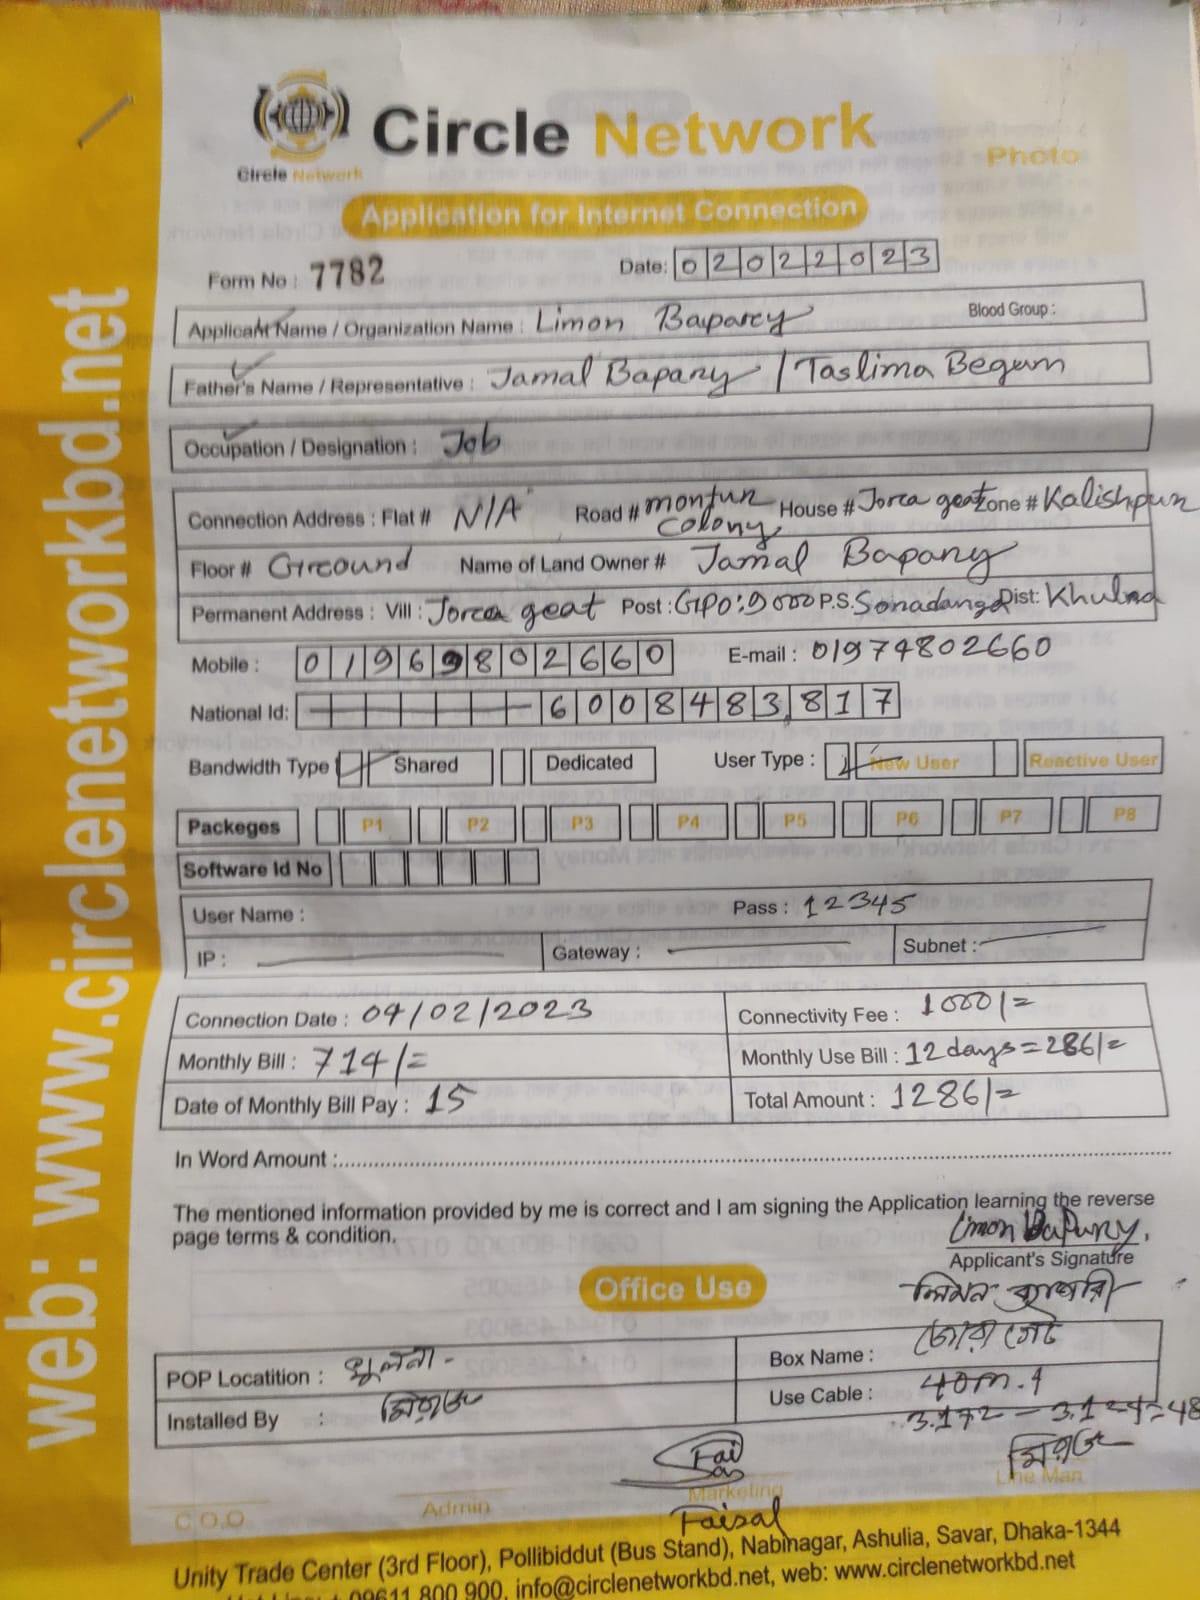 Circle Network
Circle Network
Photo
Application for Internet Connection
Form No : 7782
Date: 02022023
Applicant Name / Organization Name : Limon Baparcy
Blood Group :
Father's Name / Representative : Jamal Bapary / Taslima Begum
Occupation / Designation : Job
Connection Address : Flat # N/A Road # montur colony, House # Jorca geat Zone # Kalishpur
Floor # Ground Name of Land Owner # Jamal Bapary
Permanent Address : Vill : Jorca geat Post : GPO:9000 P.S. Sonadanga Dist: Khulna
Mobile : 01969802660 E-mail : 01974802660
National Id: 6008483817
Bandwidth Type Shared Dedicated User Type : New User Reactive User
Packeges P1 P2 P3 P4 P5 P6 P7 P8
Software Id No
User Name : Pass : 12345
IP : Gateway : Subnet :
Connection Date : 04/02/2023 Connectivity Fee : 1000/=
Monthly Bill : 714/= Monthly Use Bill : 12 days = 286/=
Date of Monthly Bill Pay : 15 Total Amount : 1286/=
In Word Amount :
The mentioned information provided by me is correct and I am signing the Application learning the reverse
page terms & condition.
Limon Bapary.
Applicant's Signature
লিমন ব্যাপারী
Office Use
POP Locatition : খুলনা - Box Name : জোরা গেট
Installed By : মিরাজ Use Cable : 40m.
মিরাজ
Fai
Marketing Line Man
C.O.O Admin
Faisal
Unity Trade Center (3rd Floor), Pollibiddut (Bus Stand), Nabinagar, Ashulia, Savar, Dhaka-1344
09611 800 900, info@circlenetworkbd.net, web: www.circlenetworkbd.net
web: www.circlenetworkbd.net